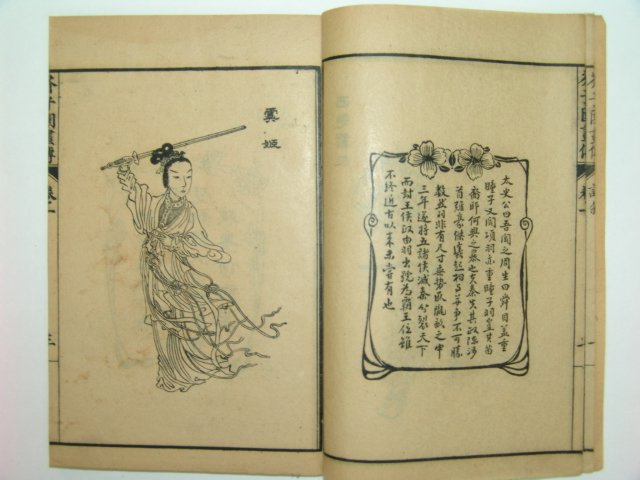 芥子園畫傳
太史公曰吾聞之周生曰舜目蓋重
瞳子又聞項羽亦重瞳子羽豈其苗
裔耶何興之暴也夫秦失其政陳涉
首難豪傑蠭起相與並爭不可勝
數然羽非有尺寸乘勢起隴畝之中
三年遂將五諸侯滅秦分裂天下
而封王侯政由羽出號為霸王位雖
不終近古以來未嘗有也
虞姬
芥子園畫傳